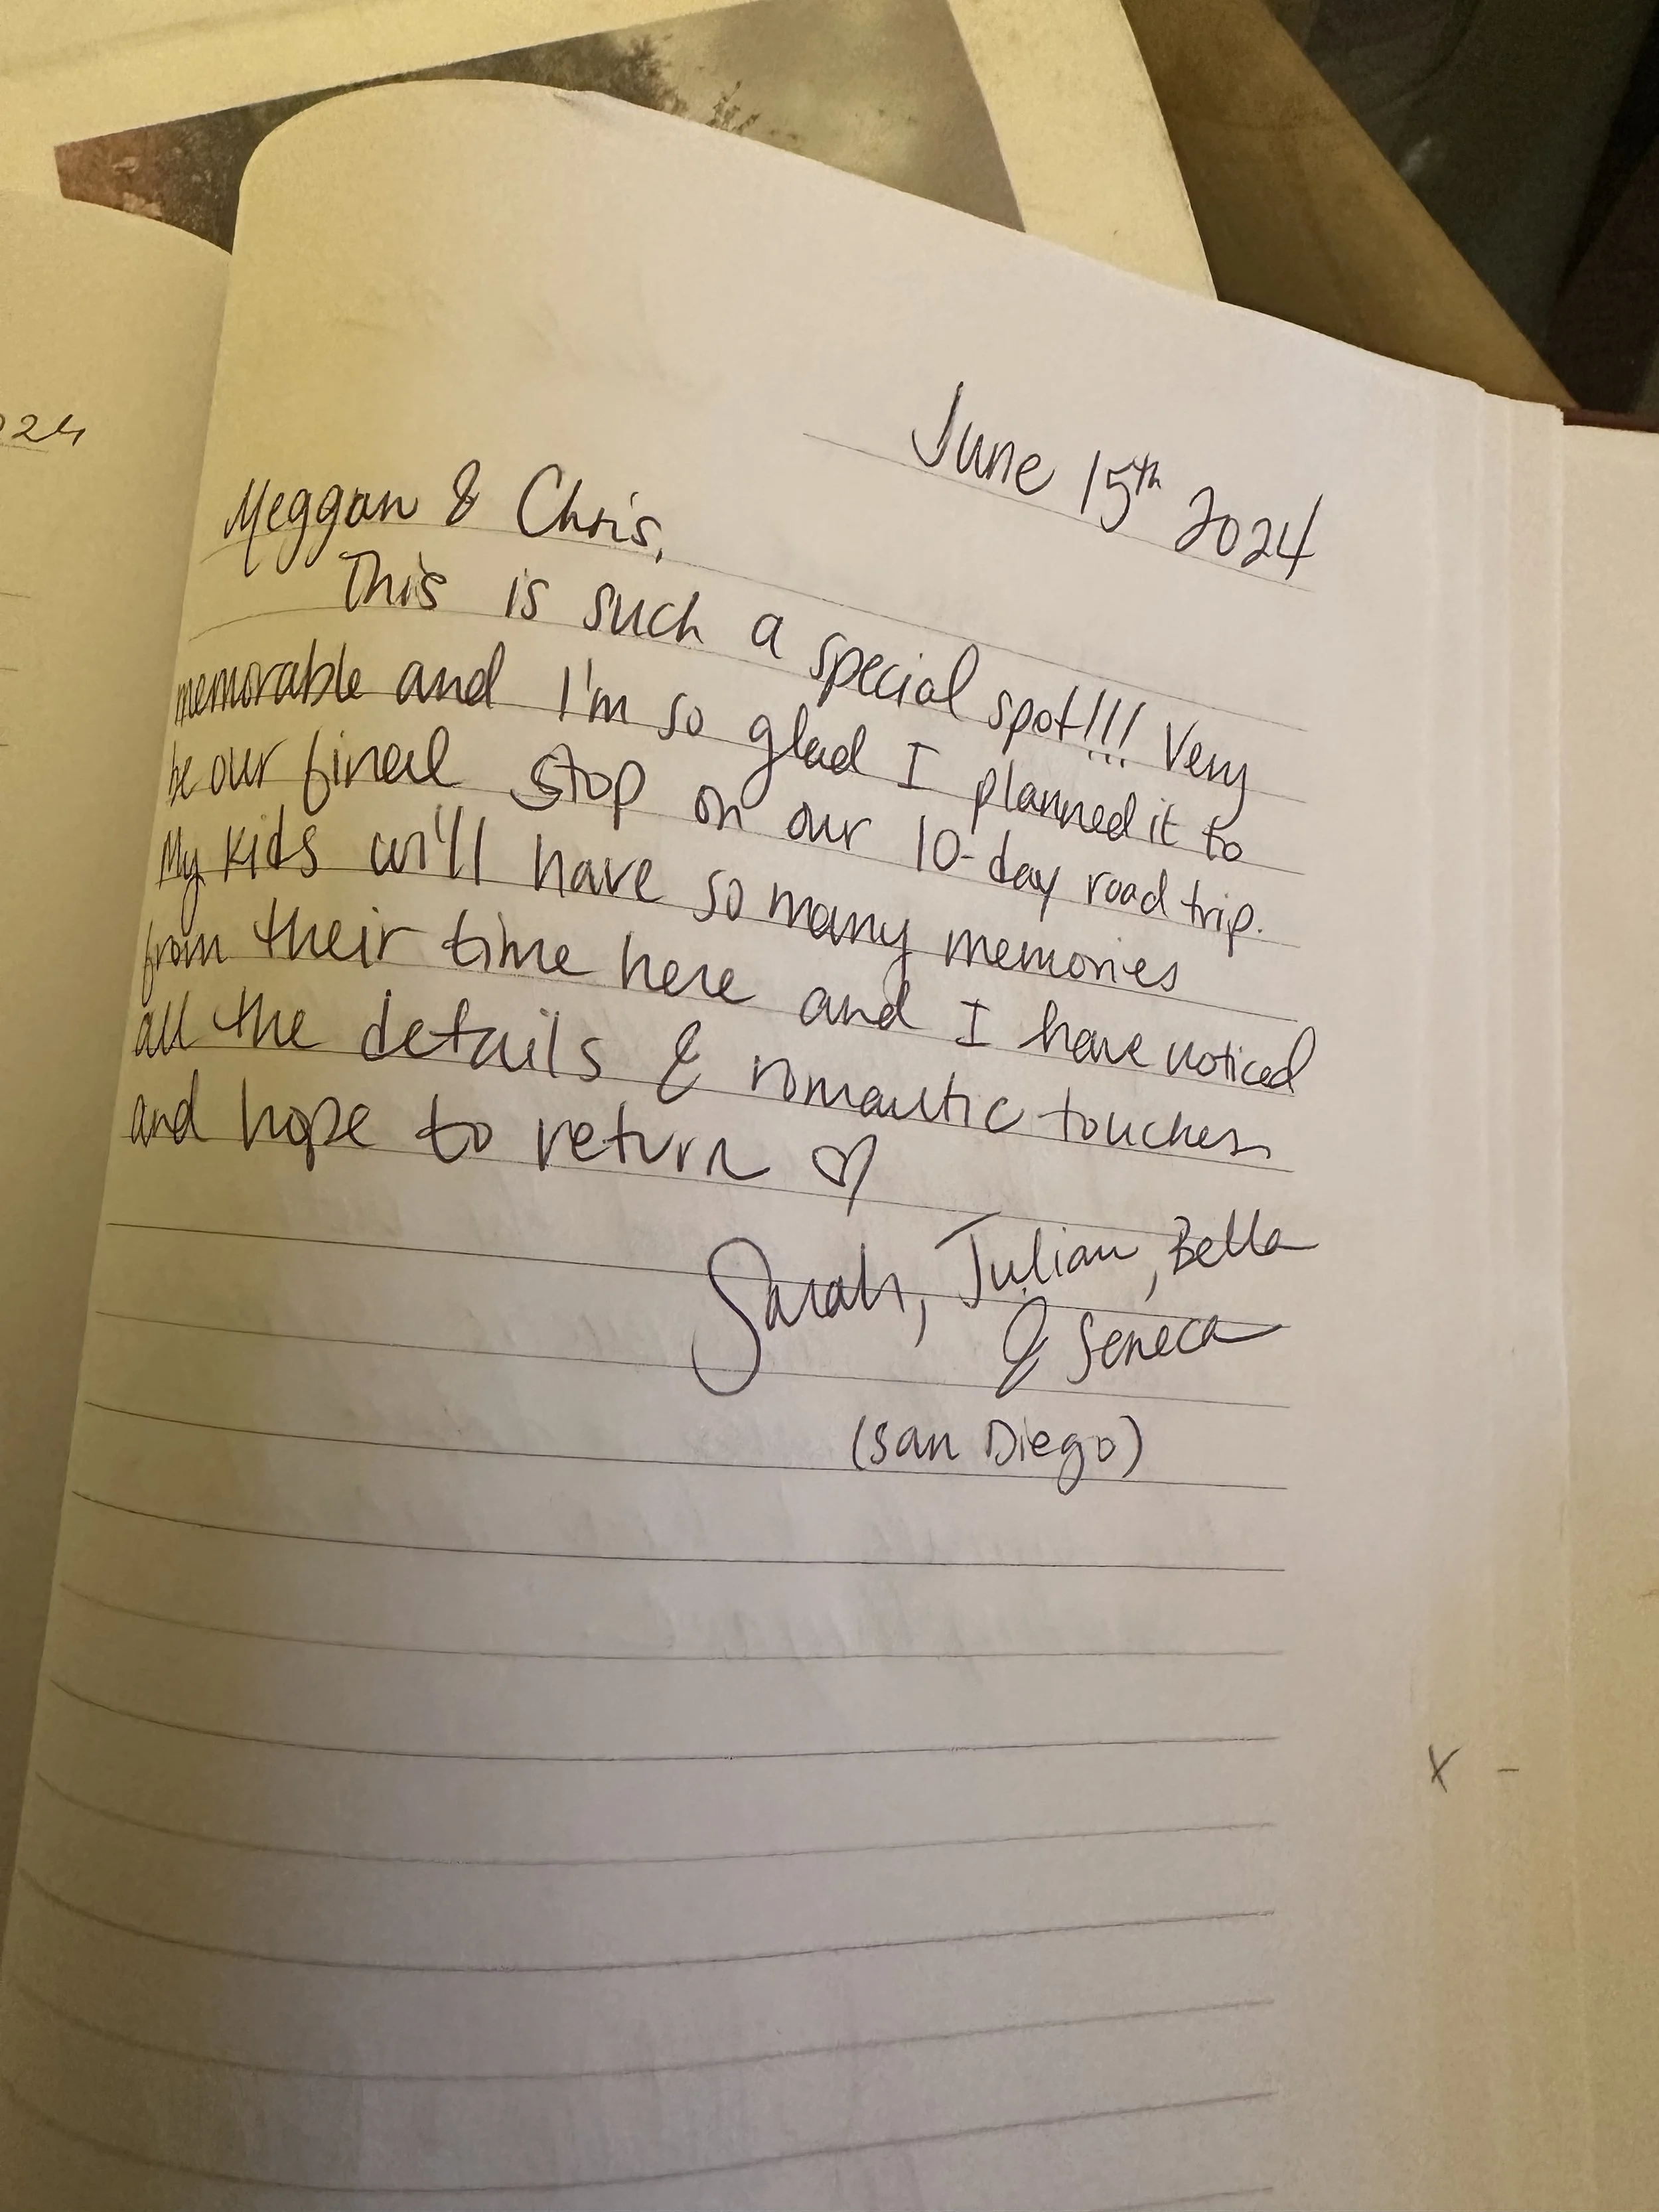 024
June 15th 2024
Meggan & Chris,
This is such a special spot!!! Very
memorable and I'm so glad I planned it to
be our final stop on our 10-day road trip.
My kids will have so many memories
from their time here and I have noticed
all the details & romantic touches
and hope to return ♡
Sarah, Julian, Bella
& Seneca
(San Diego)
X -